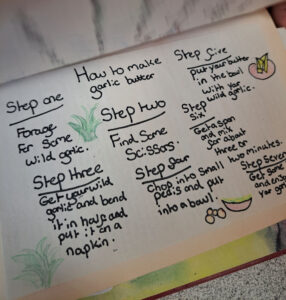 How to make
garlic butter
Step one
Forage
For Some
wild garlic.
Step two
Find Some
Scissors.
Step three
Get your wild
garlic and bend
it in half and
put it on a
napkin.
Step four
Chop into Small
peices and put
into a bowl.
Step five
put your butter
in the bowl
with your
wild garlic.
Step
Six
Get a spoon
and mix
for about
three or
two minutes.
Step Seven
Get some
and